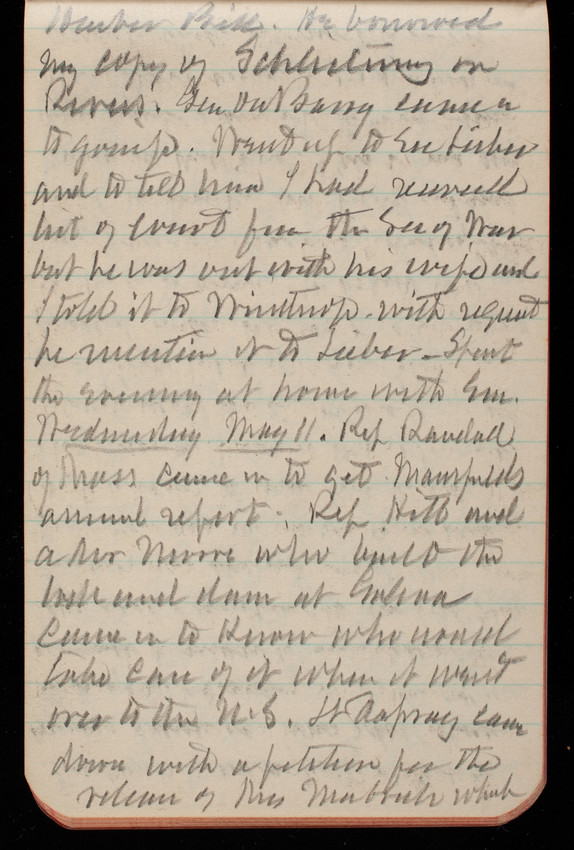 Harbor Bill. He borrowed
my copy of Schlichting on
Rivers. Gen Van Barry came in
to gossip. Went up to see Lieber
and to tell him I had received
bit of court from the Sec of War
but he was out with his wife and
I told it to Winthrop with request
he mention it to Lieber - Spent
the evening at home with Em.
Wednesday May 11. Rep Randall
of Mass came in to get Mansfields
annual report. Rep Hitt and
a Mr Moore who built the
lock and dam at Galena
came in to know who would
take care of it when it went
over to the U.S. St came
down with a petition for the
release of Mrs Maybrick which